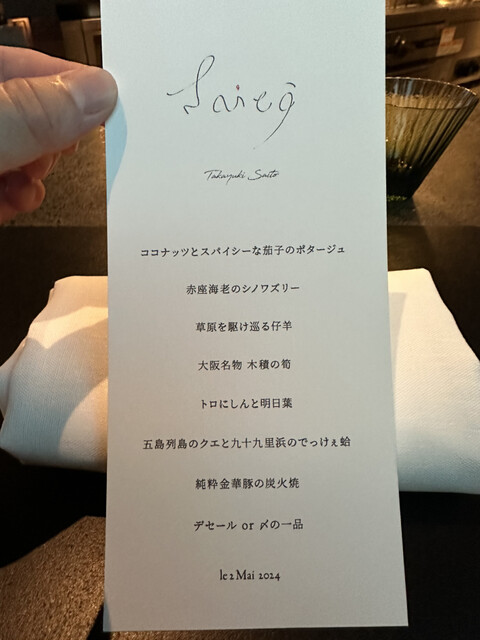 Takayuki Saito
ココナッツとスパイシーな茄子のポタージュ
赤座海老のシノワズリー
草原を駆け巡る仔羊
大阪名物 木積の筍
トロにしんと明日葉
五島列島のクエと九十九里浜のでっけぇ蛤
純粋金華豚の炭火焼
デセール or 〆の一品
le 2 Mai 2024